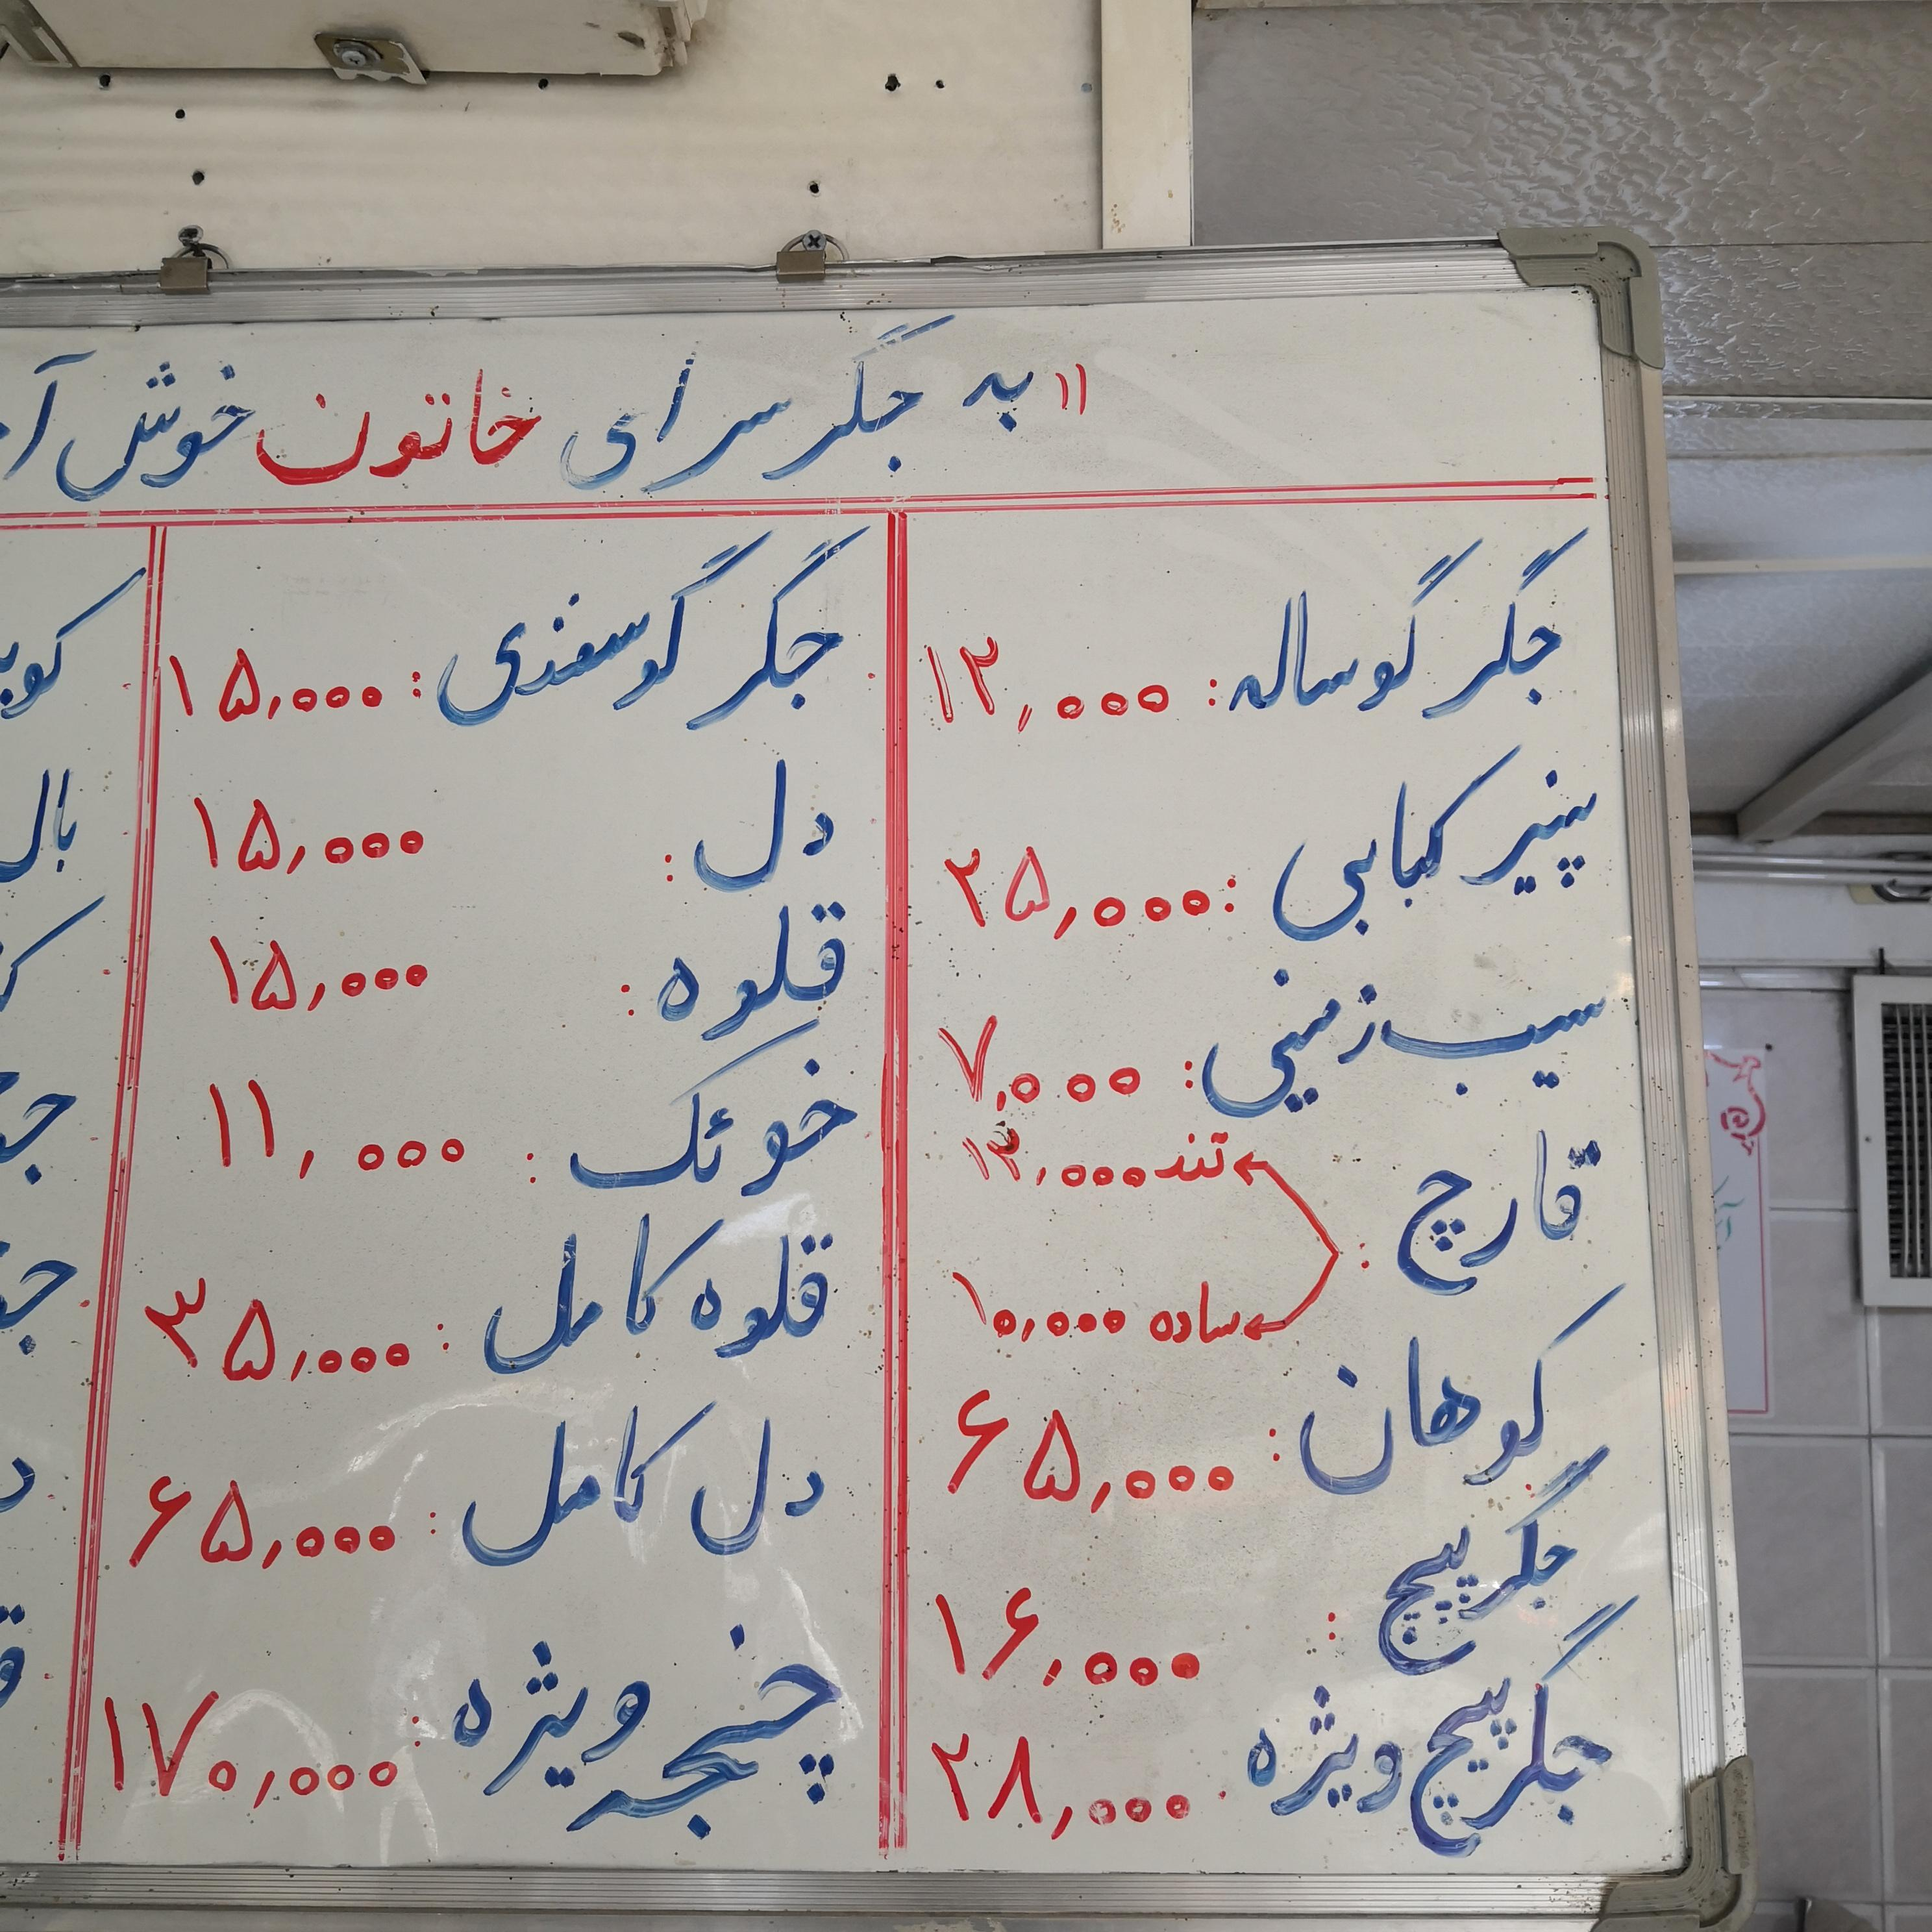 "به جگر سرای خاتون خوش
جگر گوساله: ۱۳,۰۰۰
پنیر کبابی: ۲۵,۰۰۰
سیب زمینی: ۷,۰۰۰
قارچ: تند ۱۳,۰۰۰
ساده ۱۰,۰۰۰
کوهان: ۶۵,۰۰۰
جگر پیچ: ۱۶,۰۰۰
جگر پیچ ویژه: ۲۸,۰۰۰
جگر گوسفندی: ۱۵,۰۰۰
دل: ۱۵,۰۰۰
قلوه: ۱۵,۰۰۰
خوئک: ۱۱,۰۰۰
قلوه کامل: ۳۵,۰۰۰
دل کامل: ۶۵,۰۰۰
چنجه ویژه: ۱۷۰,۰۰۰
بال